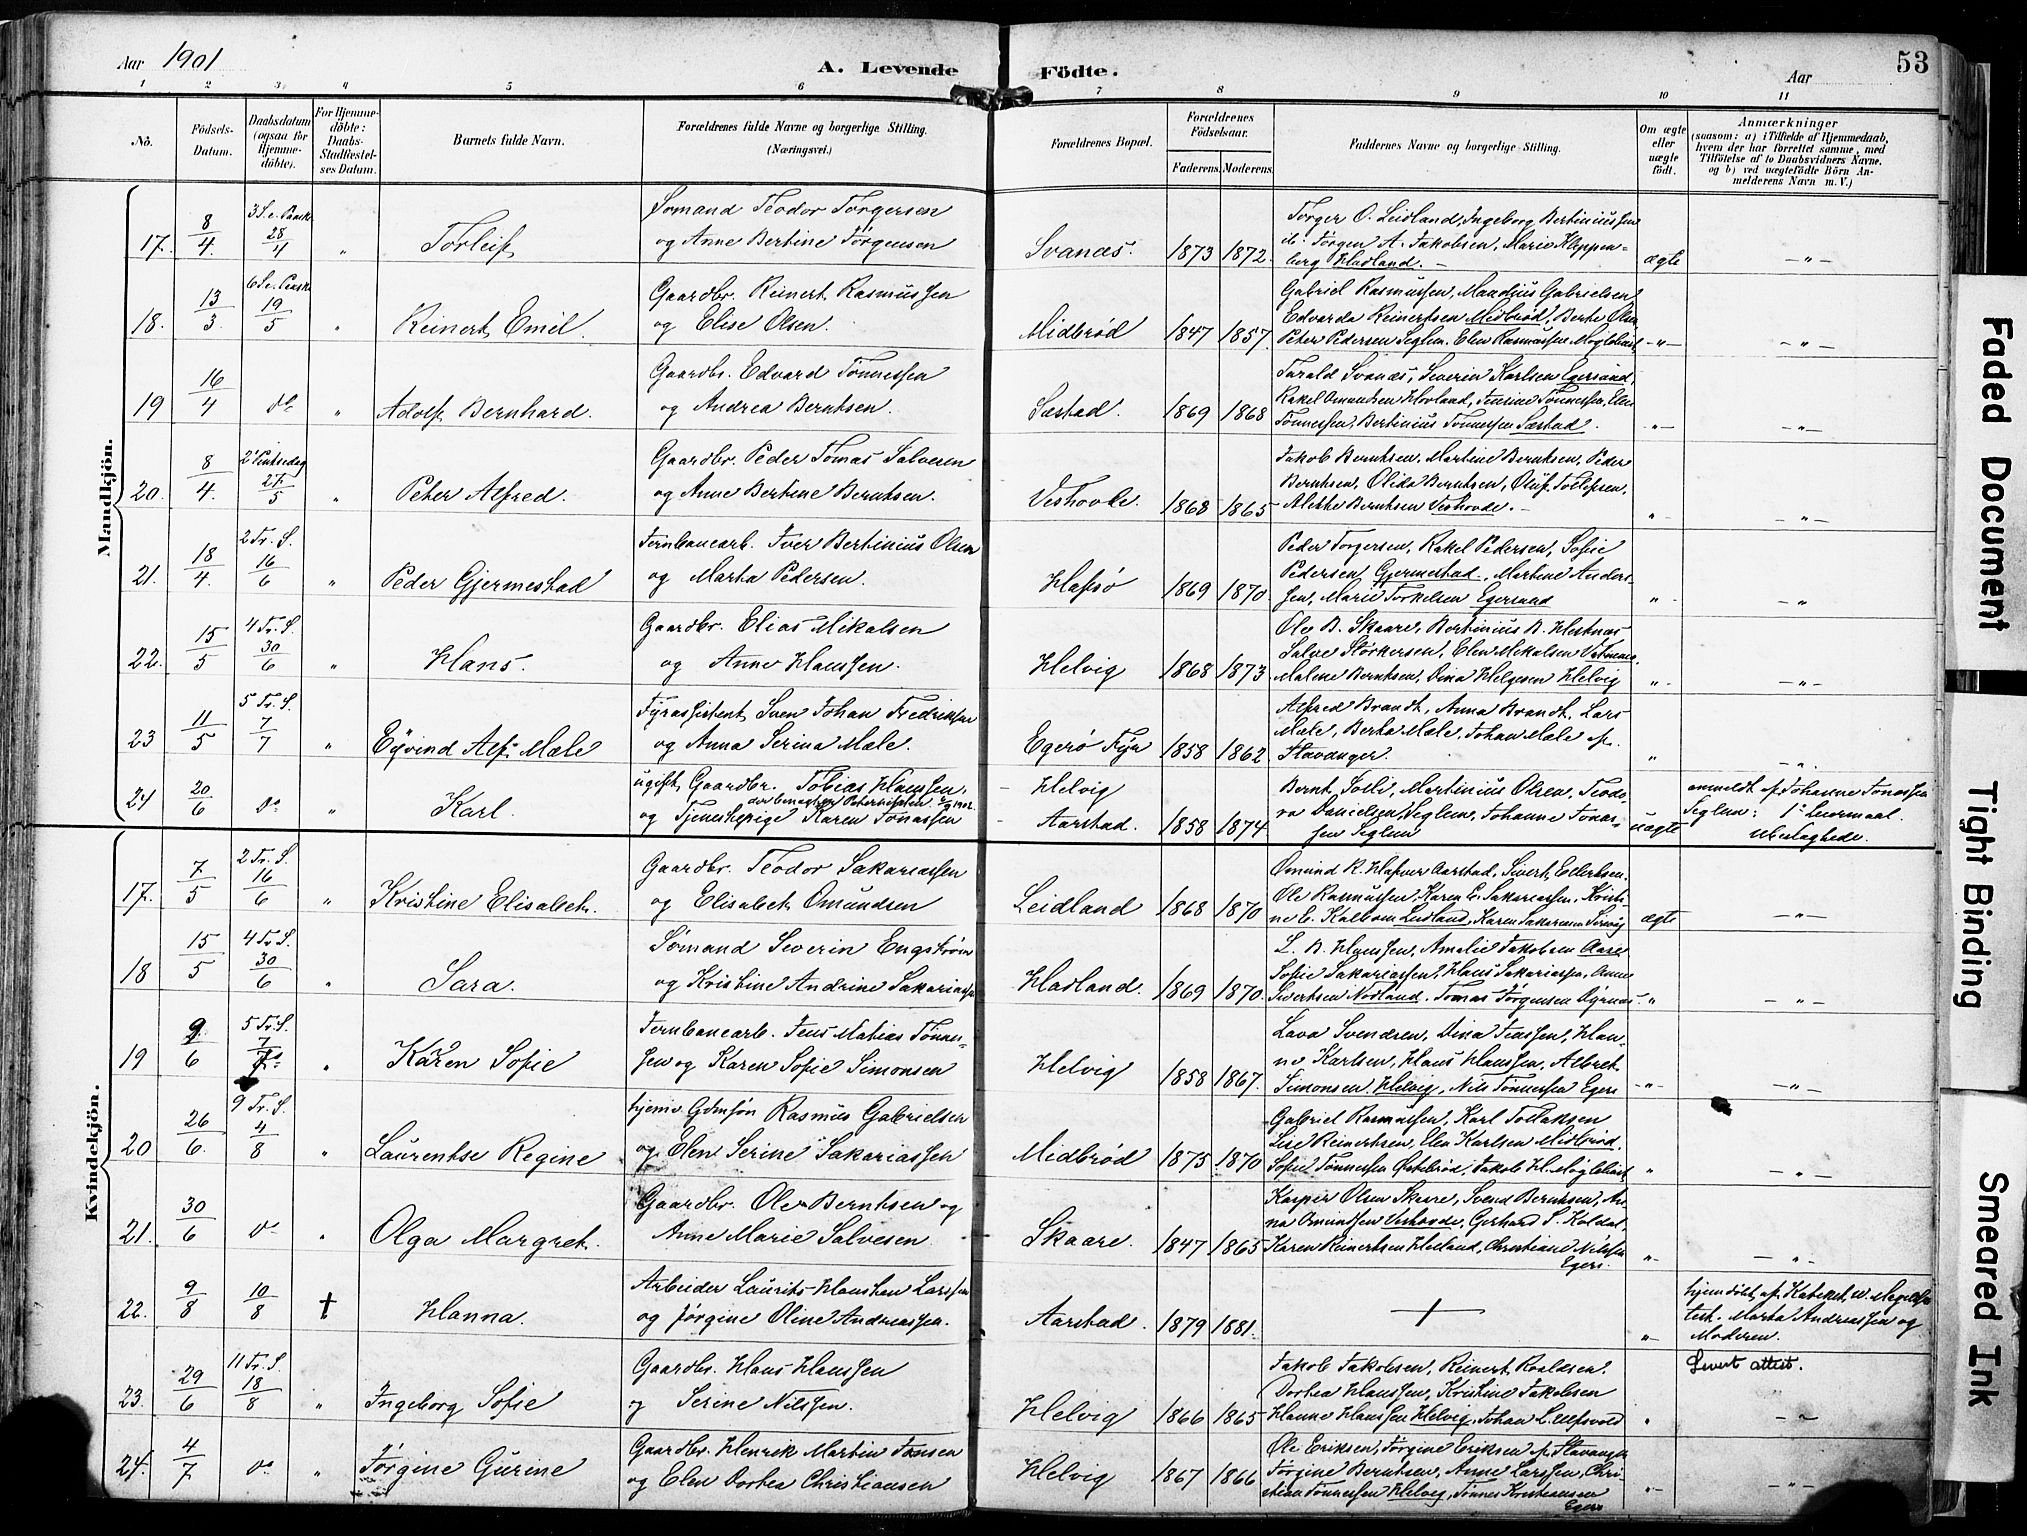 Aar 1901
A. Levende Födte.
Aar
53
1 2 3 4 5 6 7 8 9 10 11
No.
Födsels-Datum.
Daabsdatum (ogsaa for Hjemmedöbte).
For Hjemmedöbte: Daabs-Stadfæstelses Datum.
Barnets fulde Navn.
Forældrenes fulde Navne og borgerlige Stilling. (Næringsvei.)
Forældrenes Bopæl.
Forældrenes Födselsaar.
Faderens. Moderens.
Faddernes Navne og borgerlige Stilling.
Om ægte eller uægte födt.
Anmærkninger
(saasom: a) i Tilfælde af Hjemmedaab,
hvem der har forrettet samme, med
Tilföielse af to Daabsvidners Navne,
og b) ved uægtefödte Börn An-
melderens Navn m. V.)
Mandkjön.
17. 8/4. 3 S. e. Paask 28/4 " Torleif
Sømand Teodor Torgersen
og Anne Bertine Jörgensen
Svanæs. 1873 1872.
Torger O. Leidland, Ingeborg Bertiniussen
ib: Jörgen A. Jakobsen, Marie Kleppen-
berg Hadland. ægte
18. 13/3. 6 S. e. Paask 19/5 " Reinert Emil.
Gaardbr. Reinert Rasmussen
og Elise Olsen.
Midbröd 1847 1857.
Gabriel Rasmussen, Gabrielsen
Edvarda Reinertsen Midbröd, Berte Olsen
Peter Pedersen Seglem. Elen Rasmussen
19 16/4 do " Adolf Bernhard.
Gaardbr. Edvard Tönnessen
og Andrea Berntsen.
Sæstad. 1869 1868
Tarald Svanæs, Severin Karlsen Egersund,
Rakel Omundsen Hovland, Tönnessen,
Tönnessen, Bertinius Tönnessen Sæstad.
20. 8/4. 2 Pintsedag 27/5 " Peter Alfred.
Gaardbr. Peder Tomas Salvesen
og Anne Bertine Berntsen.
Veshovde. 1868 1865
Jakob Berntsen, Martine Berntsen, Peder
Berntsen, Olida Berntsen, Oluf Tollefsen,
Alette Berntsen Veshovde.
21. 18/4. 2 Tr. S. 16/6 " Peder Gjermestad
Jernbanearb. Iver Bertinius Olsen
og Marta Pedersen.
Hafsö 1869 1870
Peder Torgersen, Rakel Pedersen, Sofie
Pedersen Gjermestad, Martine Anders-
sen, Marie Torkelsen Egersund
22. 15/5 4 Tr. S. 30/6 " Hans.
Gaardbr. Elias Mikalsen
og Anne Hanssen.
Helvig 1868 1873
Ole B. Skaare, Bertinius B. Hestnæs
Salve Störkersen, Elen Mikalsen
Malene Berntsen, Dina Helgesen Helvig
23 11/5 5 Tr. S. 7/7 " Eyvind Alf Mæle
Fyrassistent Sven Johan Fredriksen
og Anna Serina Mæle.
Egerö Fyr 1858 1862
Alfred Brandt, Anna Brandt, Lars
Mæle, Berta Mæle, Johan Mæle af
Stavanger.
24 20/6 do " Karl.
ugift Gaardbr. Tobias Hanssen,
og Tjenestepige Karen Jonassen
Helvig
Aarstad. 1858 1874
Bernt Solli, Martinius Olsen, Teodo-
ra Danielsen Seglem, Johanne Jonas-
sen Seglem uægte
anmeldt af Johanne Jonassen
Seglem: 1ste Leiermaal
Kvindekjön.
17. 7/5 2 Tr. S. 16/6 " Kristine Elisabet.
Gaardbr. Teodor Sakariassen
og Elisabet Omundsen
Leidland 1868 1870
Omund R. Aarstad, Sivert Ellertsen.
Ole Rasmussen, Karen E. Sakariassen, Kristi-
ne E. Leidland, Karen Sakariassen ægte
18 15/5 4 Tr. S. 30/6 " Sara.
Sømand Severin Engström
og Kristine Andrine Sakariassen
Hadland. 1869 1870.
L. B. Hanssen, Amalie Jakobsen Aase,
Sofie Sakariassen, Hans Sakariassen,
Sivertsen Nodland. Tomas Jörgensen
19 9/6 5 Tr. S. 7/7 " Karen Sofie
Jernbanearb. Jens Matias Tönnes-
sen og Karen Sofie Simonsen
Helvig 1858 1867.
Lava Svendsen, Dina Han-
ne Karlsen, Hans Hanssen, Albret
Simonsen Helvig, Nils Tönnessen Egers
20 26/6. 9 Tr. S. 4/8 " Laurentse Regine
hjemv. Gdmsøn Rasmus Gabrielsen
og Elen Serine Sakariassen
Midbröd 1875 1870
Gabriel Rasmussen, Karl Tollaksen
Lise Reinertsen, Elen Karlsen Midbröd,
Sofie Tönnessen Östebröd, Jakob H.
21. 30/6 do " Olga Margret.
Gaardbr. Ole Berntsen og
Anne Marie Salvesen
Skaare. 1847 1865
Kasper Olsen Skaare, Svend Berntsen, An-
na Omundsen Veshovde, Gerhard S. Koldal
Karen Reinertsen Hæland, Christiane Nilssen
Egers.
22. 9/8 10/8 † Hanna.
Arbeider Laurits Larssen
og Jörgine Oline Andreassen.
Aarstad. 1879 1881.
+
hjemdöbt af Kateket
test. Marta Andreassen og
Moderen.
Levert attest.
23. 29/6 11 Tr. S. 18/8 " Ingeborg Sofie
Gaardbr. Hans Hanssen
og Serine Nilssen.
Helvig 1866 1865
Jakob Jakobsen, Reinert Roaldsen.
Dortea Hanssen, Kristine Jakobsen
Hanne Hanssen Helvig, Johan L.
24. 4/7 do " Jörgine Gurine
Gaardbr. Henrik Martin Jansen
og Elen Dortea Christiansen
Helvig 1867 1866
Ole Eriksen, Jörgine Eriksen af Stavanger
Jörgine Berntsen, Anne Larssen, Chri-
stian Tönnessen Helvig, Tönnes Kristiansen
Egers
Faded Document
Tight Binding
Smeared Ink